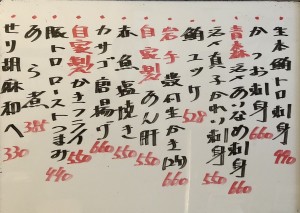 生本鮪トロ刺身 990
かつお刺身 660
青森 天然あいなめ刺身 660
天然真子かれい刺身 550
鮪ユッケ 528
岩手 殻付生かき 1ヶ 660
自家製 あん肝 550
赤魚塩焼き 550
カサゴ唐揚げ 660
自家製 かきフライ 550
豚トロローストつまみ 440
あら煮 388
せり胡麻和へ 330